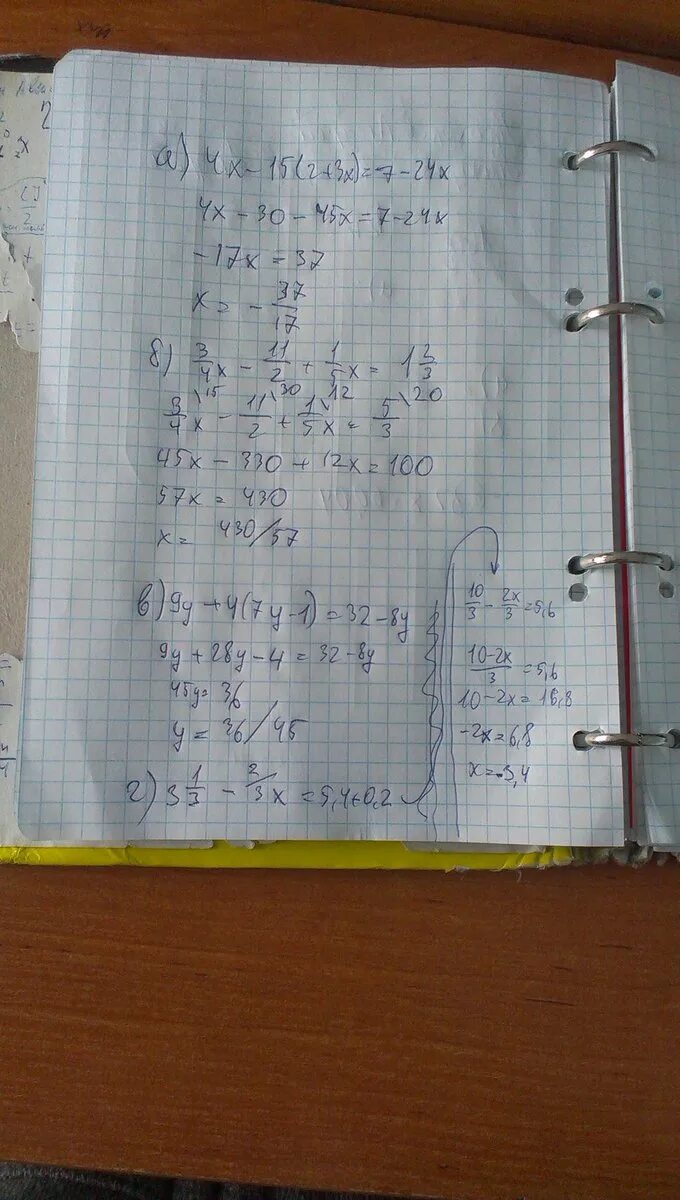 а) 4x - 15(2+3x) = 7 - 24x
4x - 30 - 45x = 7 - 24x
-17x = 37
x = - 37/17
б) 3/4 x - 11/2 + 1/5 x = 1 2/3
3/4 x \15 - 11/2 \30 + 1/5 x \12 = 5/3 \20
45x - 330 + 12x = 100
57x = 430
x = 430/57
в) 9y + 4(7y - 1) = 32 - 8y
9y + 28y - 4 = 32 - 8y
45y = 36
y = 36/45
г) 3 1/3 - 2/3 x = 5,4 + 0,2
10/3 - 2x/3 = 5,6
10-2x/3 = 5,6
10 - 2x = 16,8
-2x = 6,8
x = -3,4